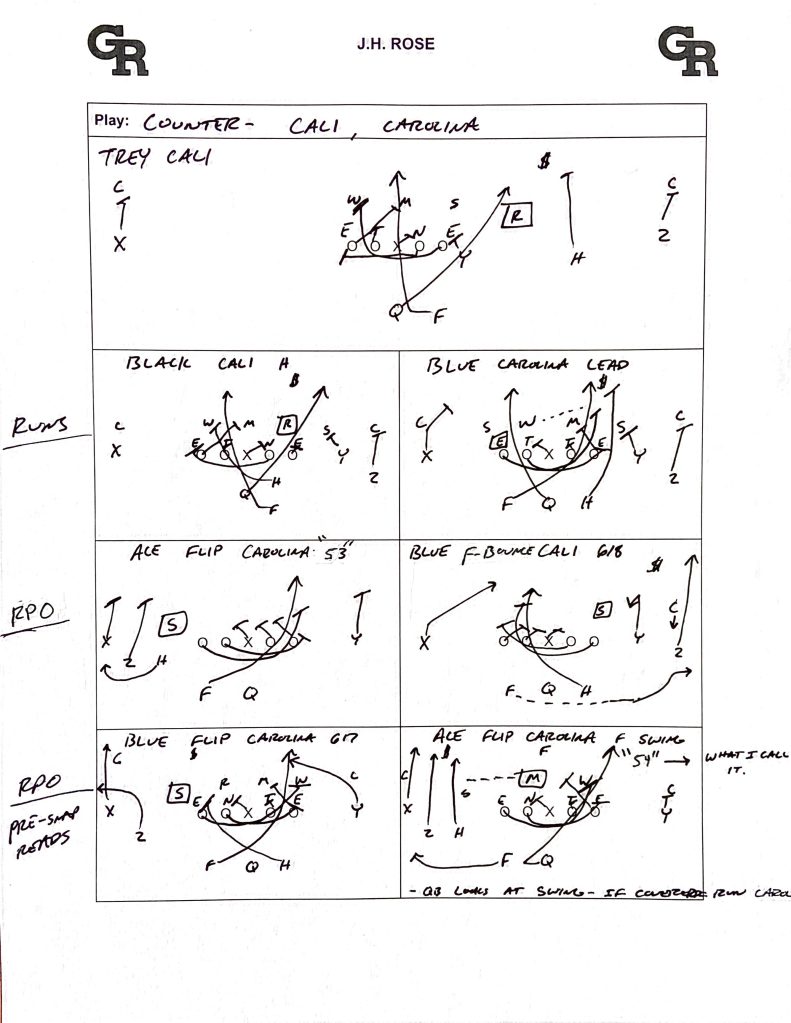 GR
J.H. ROSE
GR
Play: COUNTER - CALI, CAROLINA
TREY CALI
C
X
W M S
E T N E
R
Y
Q F
$
H
C
Z
RUNS
BLACK CALI H
$
C
X
W M R
E T X N E
H
Q
F
S
Y
C
Z
BLUE CAROLINA LEAD
$
C
X
S W M S
E T X T E
Y
C
Z
F Q H
RPO
ACE FLIP CAROLINA "53"
X Z H
S
X
F Q
Y
BLUE F-BOUNCE CALI 618
$
X
X
S
Y
C
Z
F Q H
RPO
PRE-SNAP
READS
BLUE FLIP CAROLINA 617
C
$
X
Z
S
R M W
E N X T E
C
Y
F Q H
ACE FLIP CAROLINA F SWING
F
"54" → WHAT I CALL
IT.
C $
S
M W
X Z H
E N X T E
C
Y
F Q
- QB LOOKS AT SWING - IF COVERED RUN CARO